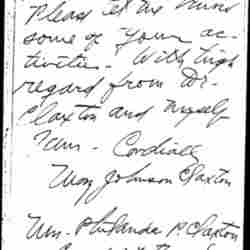 Please let me know
some of your ac-
tivities. With high
regard from Dr.
Claxton and myself
I am - Cordially
Mary Johnson Claxton
Mrs. Philander P. Claxton